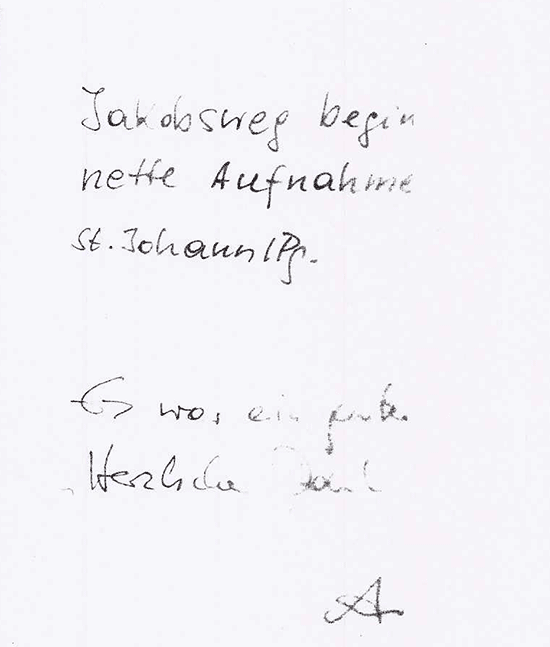 Jakobsweg begin
nette Aufnahme
St. Johann/Pg.
Es war ein guter
Herzliche Dank